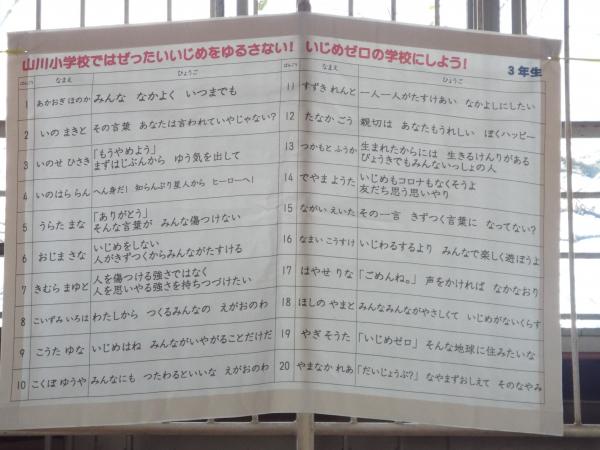 山川小学校ではぜったいいじめをゆるさない！ いじめゼロの学校にしよう！
3年生
ばんごう なまえ ひょうご
1 あかおぎ ほのか みんな なかよく いつまでも
2 いの まきと その言葉 あなたは言われていやじゃない？
3 いのせ ひさき 「もうやめよう」
まずはじぶんから ゆう気を出して
4 いのはら らん へん身だ！ 知らんぷり星人から ヒーローへ！
5 うらた まな 「ありがとう」
そんな言葉が みんな傷つけない
6 おじま さな いじめをしない
人がきずつくからみんながたすける
7 きむら まゆと 人を傷つける強さではなく
人を思いやる強さを持ちつづけたい
8 こいずみ いろは わたしから つくるみんなの えがおのわ
9 こうた ゆな いじめはね みんながいやがることだけだ
10 こくぼ ゆうや みんなにも つたわるといいな えがおのわ
ばんごう なまえ ひょうご
11 すずき れんと 一人一人がたすけあい なかよしにしたい
12 たなか ごう 親切は あなたもうれしい ぼくハッピー
13 つかもと ふうか 生まれたからには 生きるけんりがある
びょうきでもみんないっしょの人
14 でやま ようた いじめもコロナもなくそうよ
友だち思う思いやり
15 ながい えいた その一言 きずつく言葉に なってない？
16 なまい こうすけ いじわるするより みんなで楽しく遊ぼうよ
17 はやせ りな 「ごめんね。」 声をかければ なかなおり
18 ほしの やまと みんなみんながやさしくて いじめがないくらす
19 やぎ そうた 「いじめゼロ」 そんな地球に住みたいな
20 やまなか れあ 「だいじょうぶ？」 なやまずおしえて そのなやみ